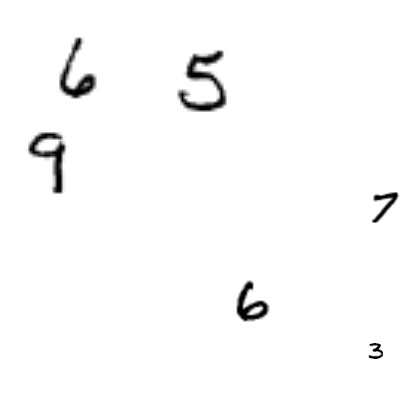 6 5
9
7
6
3